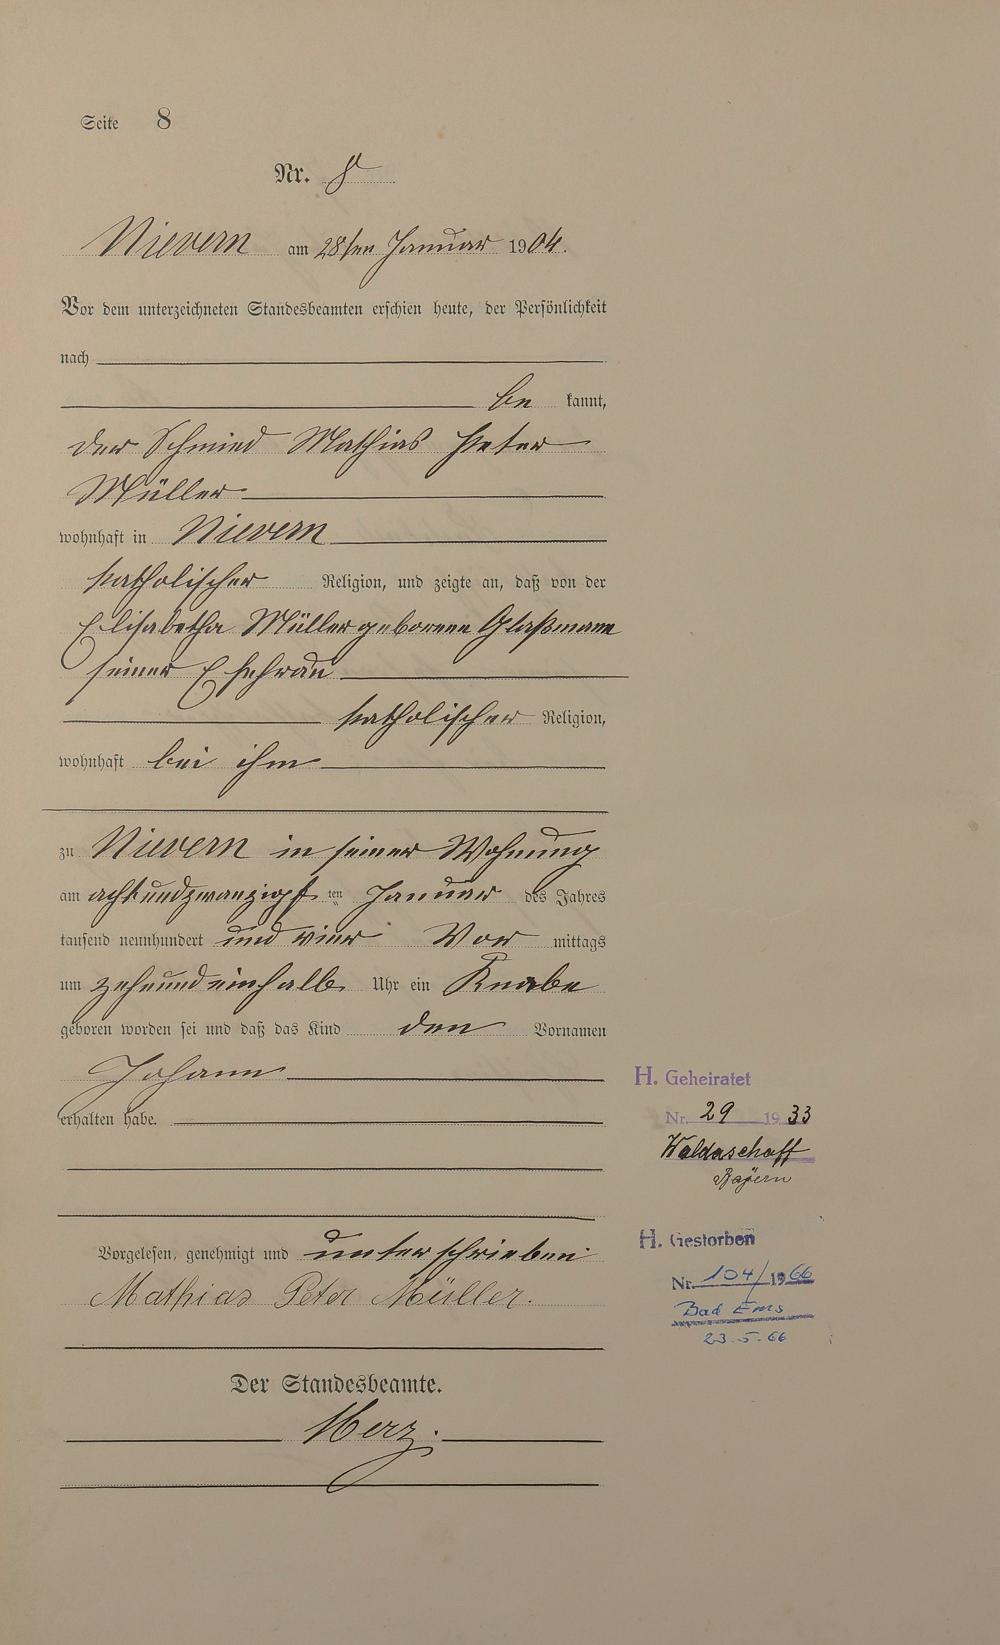 Seite 8
Nr. 8
Nievern am 28ten Januar 1904.
Vor dem unterzeichneten Standesbeamten erschien heute, der Persönlichkeit
nach
be kannt,
der Schmied Mathias Peter
Müller
wohnhaft in Nievern
katholischer Religion, und zeigte an, daß von der
Elisabetha Müller geborene Glaßmann
seiner Ehefrau
katholischer Religion,
wohnhaft bei ihm
zu Nievern in seiner Wohnung
am achtundzwanzigsten Januar des Jahres
tausend neunhundert und vier Vor mittags
um zehnundeinhalb Uhr ein Knabe
geboren worden sei und daß das Kind den Vornamen
Johann
erhalten habe.
H. Geheiratet
Nr. 29 1933
Waldaschaff
Bayern
Vorgelesen, genehmigt und unterschrieben
Mathias Peter Müller.
H. Gestorben
Nr. 104/1966
Bad Ems
23.5.66
Der Standesbeamte.
Merz.